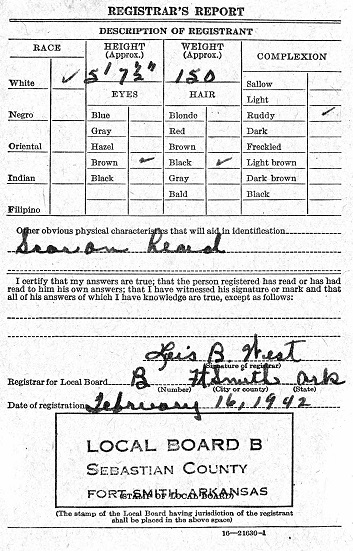 REGISTRAR'S REPORT
DESCRIPTION OF REGISTRANT
RACE
HEIGHT
(Approx.)
WEIGHT
(Approx.)
COMPLEXION
White ✓
5' 7½"
150
Sallow
Light
EYES
HAIR
Negro
Blue
Blonde
Ruddy ✓
Gray
Red
Dark
Oriental
Hazel
Brown
Freckled
Brown ✓
Black ✓
Light brown
Indian
Black
Gray
Dark brown
Bald
Black
Filipino
Other obvious physical characteristics that will aid in identification
Scar on Head
I certify that my answers are true; that the person registered has read or has had
read to him his own answers; that I have witnessed his signature or mark and that
all of his answers of which I have knowledge are true, except as follows:
B. West
(Signature of registrar)
Registrar for Local Board B Ft Smith Ark
(Number) (City or county) (State)
Date of registration February 16, 1942
LOCAL BOARD B
SEBASTIAN COUNTY
FORT SMITH ARKANSAS
(STAMP OF LOCAL BOARD)
(The stamp of the Local Board having jurisdiction of the registrant
shall be placed in the above space)
16—21630-1